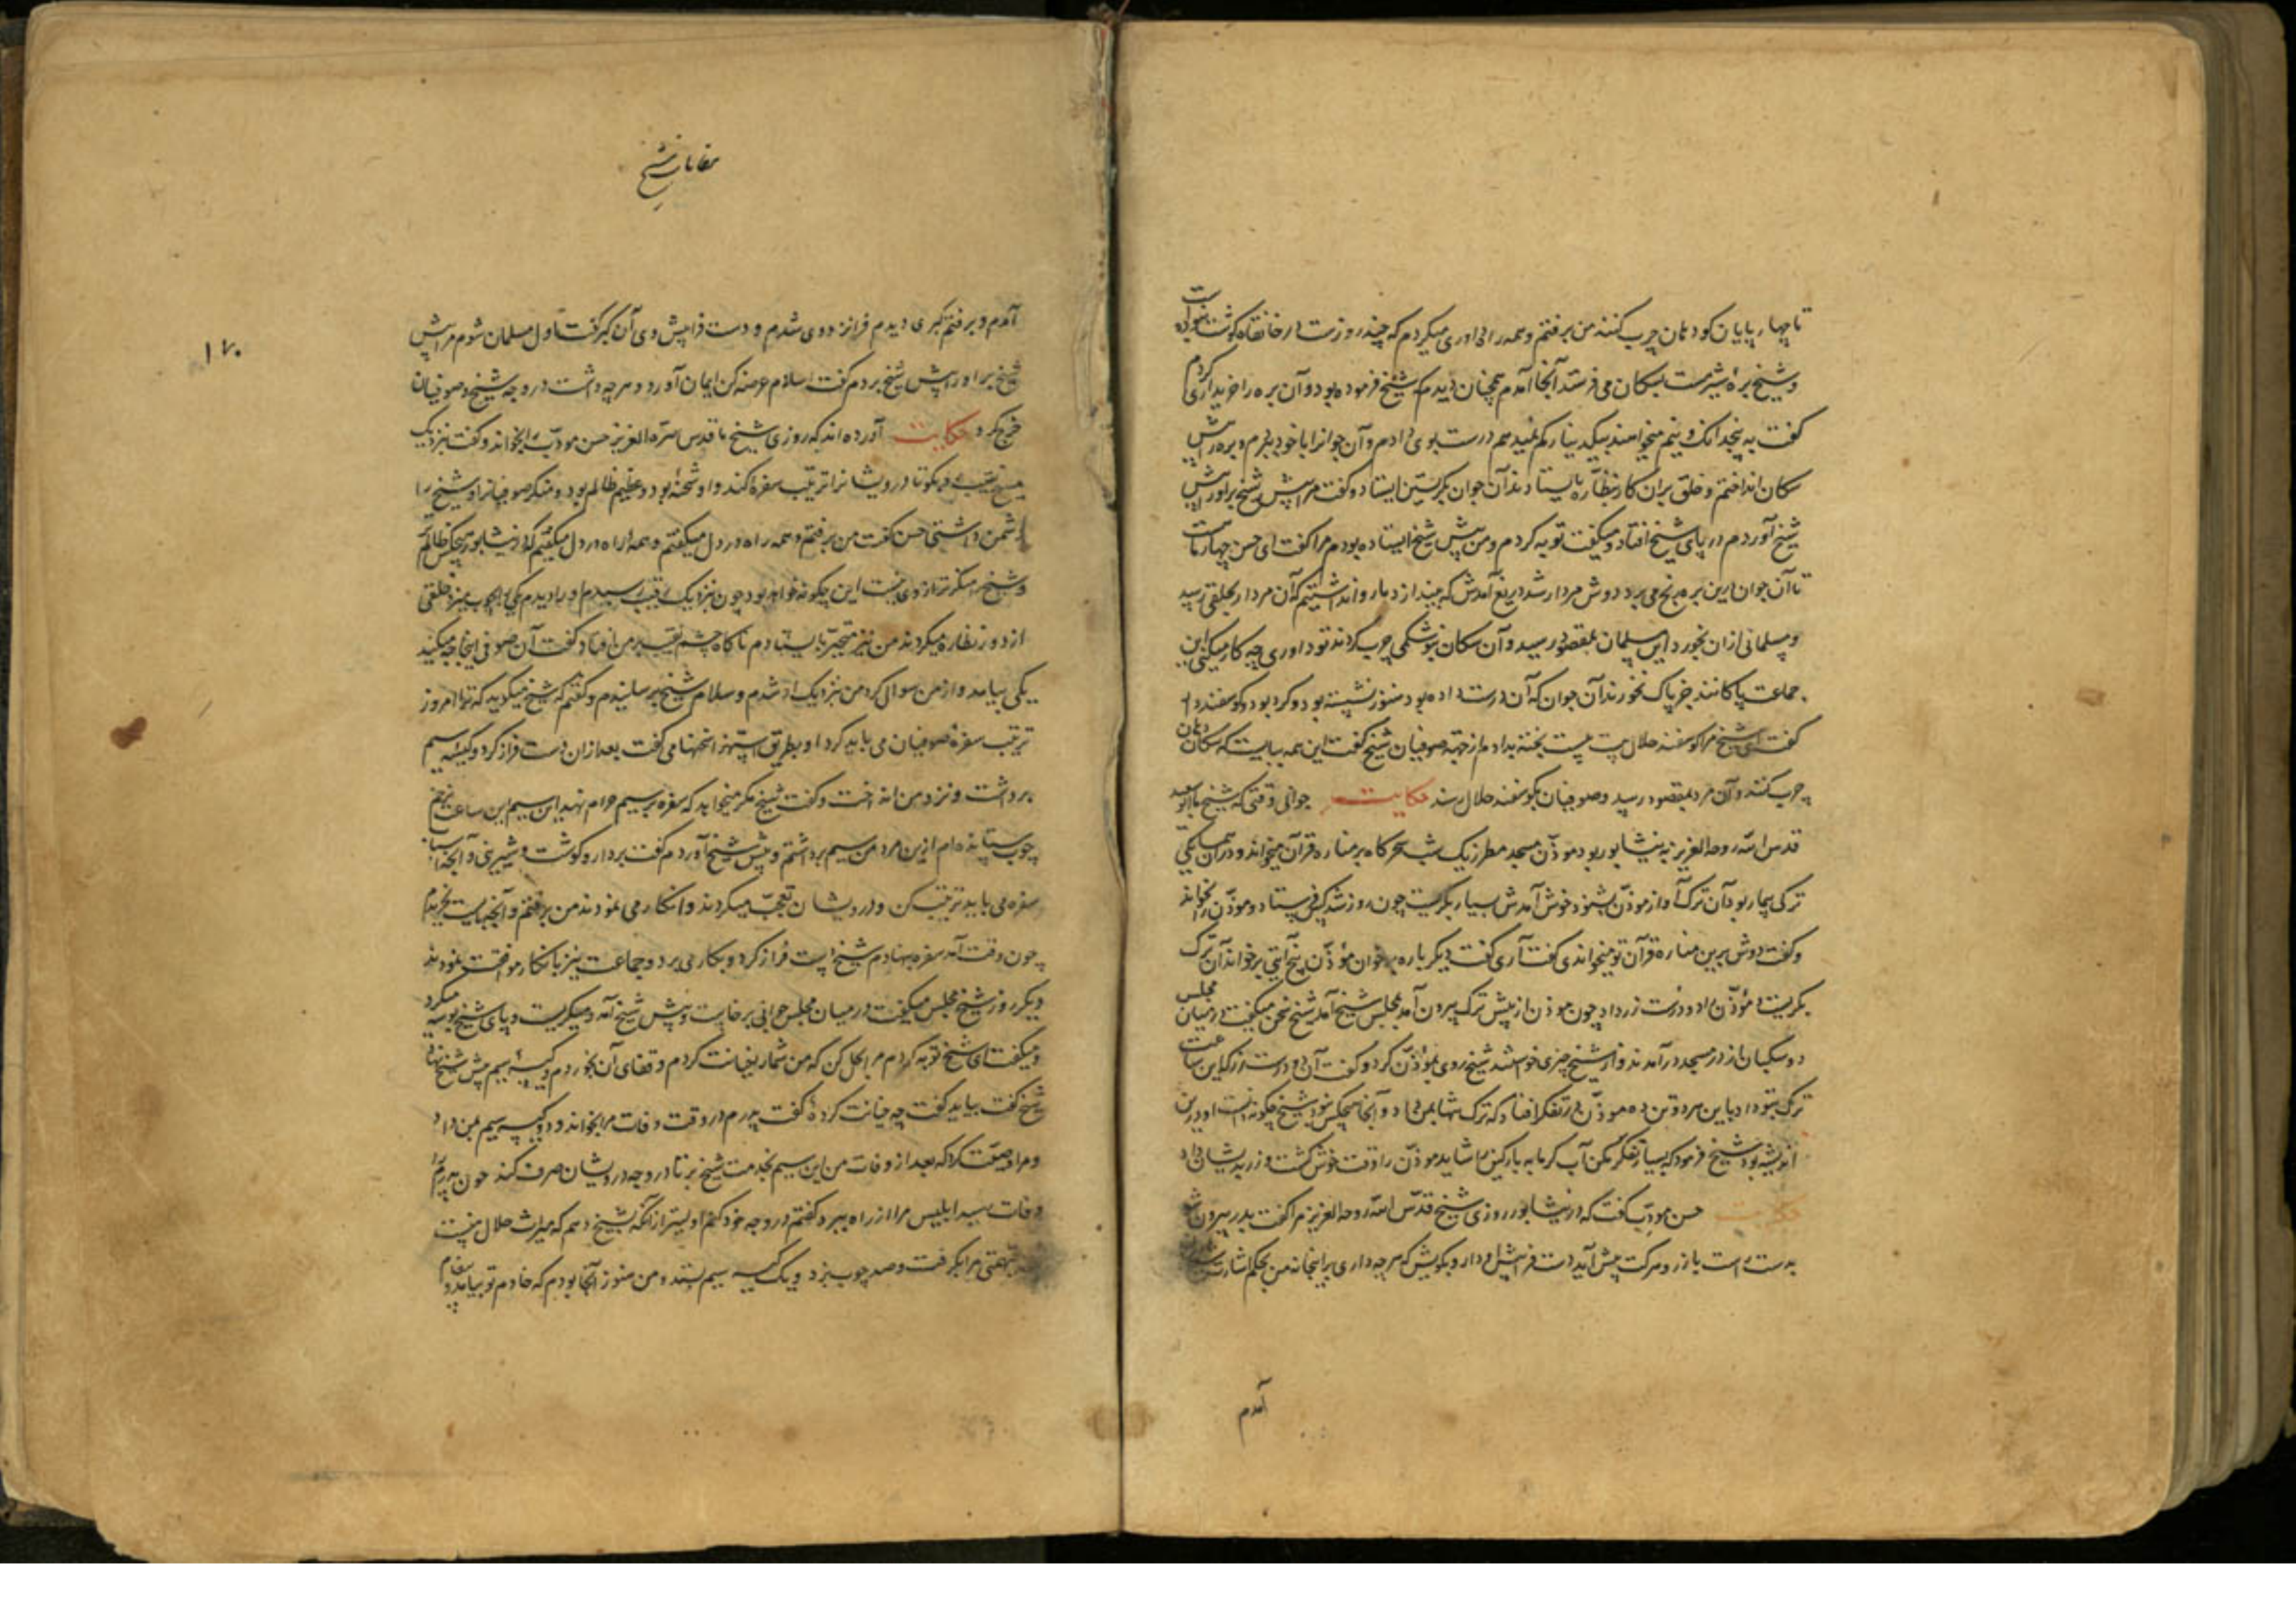 تا چهارپایان کو دهان چرب کنند من برفتم و همه راه داوری میکردم که چند روزست در خانقاه گوشت نبوده است
و شیخ برهٔ شیرمست بسکان می فرستد آنجا آمدم همچنان دیدم که شیخ فرموده بود و آن بره را خریداری کردم
گفت به پنجدانک و نیم میخواهند بیکدینار کم نمیدهم درست بوی دادم و آن جوانرا با خود ببردم و بره را پیش
سکان انداختم و خلق بران کار بنظاره بایستادند آن جوان بگریستن ایستاد و گفت مرا پیش شیخ بر اورا پیش
شیخ آوردم در پای شیخ افتاد و میگفت توبه کردم و من پیش شیخ ایستاده بودم مرا گفت ای حسن چهار ماهست
تا آن جوان برین بره رنج می برد دوش مردار شد دریغ آمدش که بیندازد ما روا نداشتیم که آن مردار بحلقی رسد
و مسلمانی ازان بخورد این مسلمان بمقصود رسید و آن سکان نیز شکمی چرب کردند تو داوری چه کار میکنی این
جماعت پاکانند جز پاک نخورند آن جوان که آن درست داده بود هنوز نشسته بود و کرد بود و گوسفنددار
گفت ای شیخ مرا گوسفند حلال هست بیست پخته بدادم از جهة صوفیان شیخ گفت این همه ببایست که سکان دهان
چرب کنند و آن مرد بمقصود رسد و صوفیان بگوسفند حلال رسند حکایت جوانی وقتی که شیخ ما ابوسعید
قدس الله روحه العزیز به نیشابور بود موذن مسجد مطرز یک شب سحرگاه بر مناره قرآن میخواند و در همسایگی
ترکی بیمار بود آن ترک آواز موذن بشنود خوش آمدش بسیار بگریست چون روز شد کس فرستاد و موذن را بخواند
و گفت دوش برین مناره قرآن تو میخواندی گفت آری گفت دیگر باره برخوان موذن پنج آیتی برخواند آن ترک
بگریست و موذن را دو درست زر داد چون موذن از پیش ترک بیرون آمد بمجلس شیخ آمد شیخ سخن میگفت در میان مجلس
دو سگبان از در مسجد درآمدند و از شیخ چیزی خواستند شیخ روی بموذن کرد و گفت آن دو درست زر که این ساعت
ترک بتو داد باین هر دو تن ده موذن در تفکر افتاد که ترک تنها بمن داد و آنجا هیچکس نبود شیخ چگونه دانست او درین
اندیشه بود شیخ فرمود که بسیار تفکر مکن آب گرمابه پارگین را شاید موذن را وقت خوش گشت و زر بدیشان داد
حکایت حسن مودب گفت که در نیشابور روزی شیخ قدس الله روحه العزیز مرا گفت بدر بیرون شو
بدست راست باز رو هرکت پیش آید دست فراپیش او دار و بگویش که هرچه داری بر اینجا نه من بحکم اشارت شیخ
آمدم
مقامات شیخ
١٧٠
آمدم و برفتم گبری دیدم فرا نزد وی شدم و دست فراپیش وی آن گبر گفت اول مسلمان شوم مرا پیش
شیخ بر اورا پیش شیخ بردم گفت اسلام عرضه کن ایمان آورد و هرچه داشت در وجه شیخ و صوفیان
خرج کرد حکایت آورده اند که روزی شیخ ما قدس سره العزیز حسن مودب را بخواند و گفت نزدیک
نقیب و بگو تا درویشانرا ترتیب سفره کند و او شحنه بود و عظیم ظالم بود و منکر صوفیانرا و شیخ را
دشمن داشتی حسن گفت من برفتم و همه راه در دل میگفتم و همه راه در دل میگفتم که در نیشابور هیچکس ظالمتر
و شیخ منکرتر از وی نیست این چگونه خواهد بود چون نزدیک نقیب رسیدم او را دیدم یکی را بچوب میزد خلقی
از دور نظاره میکردند من نیز متحیر بایستادم ناگاه چشم نقیب بر من افتاد گفت آن صوفی اینجا چه میکند
یکی بیامد و از من سوال کرد من نزدیک او شدم و سلام شیخ برسانیدم و گفتم که شیخ میگوید که ترا امروز
ترتیب سفرهٔ صوفیان می باید کرد او بطریق استهزا سخنها می گفت بعد ازان دست فراز کرد و کیسه سیم
برداشت و نزد من انداخت و گفت شیخ مگر میخواهد که سفره بر سیم حرام نهد این سیم این ساعت بزخم
چوب ستانیده ام ازین مرد من سیم برداشتم و پیش شیخ آوردم گفت بردار و گوشت و شیرینی و آنچه اسباب
سفره می باید ترتیب کن و درویشان تعجب میکردند و انکار می نمودند من برفتم و آنچه بایست بخریدم
چون وقت آمد سفره بنهادم شیخ دست فراز کرد و بکار می برد و جماعت نیز با انکار موافقت نمودند
دیگر روز شیخ مجلس میگفت در میان مجلس جوانی برخاست و پیش شیخ آمد و میگریست و پای شیخ بوسه میکرد
و میگفت ای شیخ توبه کردم مرا بحل کن که من شما را خیانت کردم و قفای آن بخوردم و کیسهٔ سیم پیش شیخ نهاد
شیخ گفت بیاید گفت چه خیانت کردهٔ گفت پدرم در وقت وفات مرا بخواند و دو کیسه سیم بمن داد
و مرا وصیت کرد که بعد از وفات من این سیم بخدمت شیخ بر تا در وجه درویشان صرف کند چون پدرم را
وفات رسید ابلیس مرا از راه ببرد گفتم در وجه خود کنم اولیتر از آنکه بشیخ دهم که میراث حلال منست
بتهمتی مرا بگرفت و صد چوب بزد و یک کیسه سیم بستد و من هنوز آنجا بودم که خادم تو بیامد و پیغام